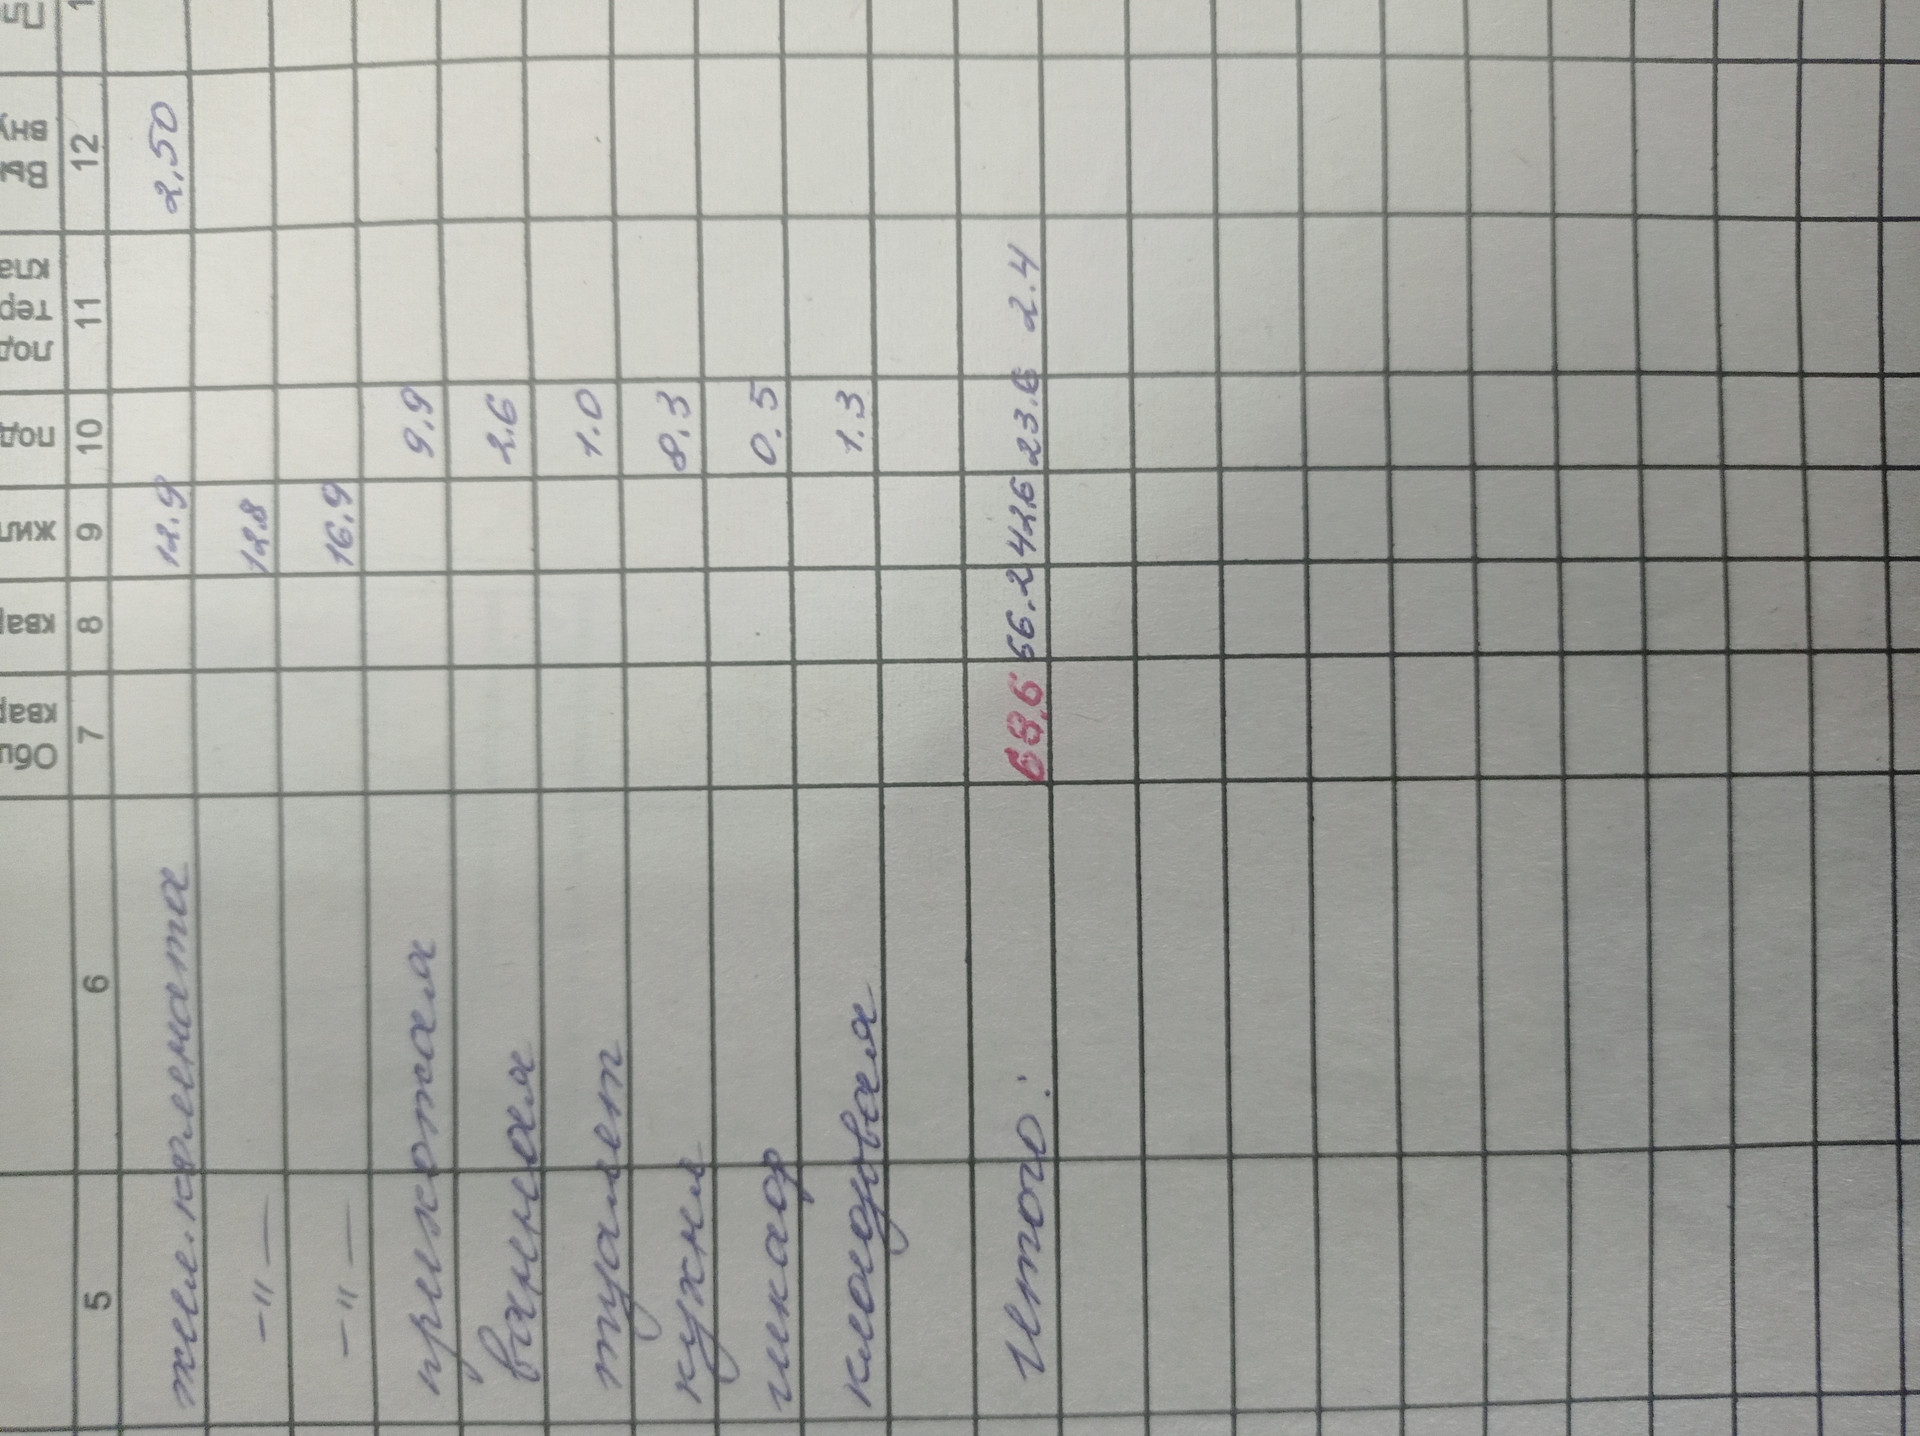 5 6 7 8 9 10 11 12
жил. комната 12.9 2,50
-"- 12.8
-"- 16,9
прихожая 9,9
ванная 2.6
туалет 1.0
кухня 8.3
шкаф 0.5
кладовая 1.3
Итого: 68,6 66.2 42.6 23.6 2.4